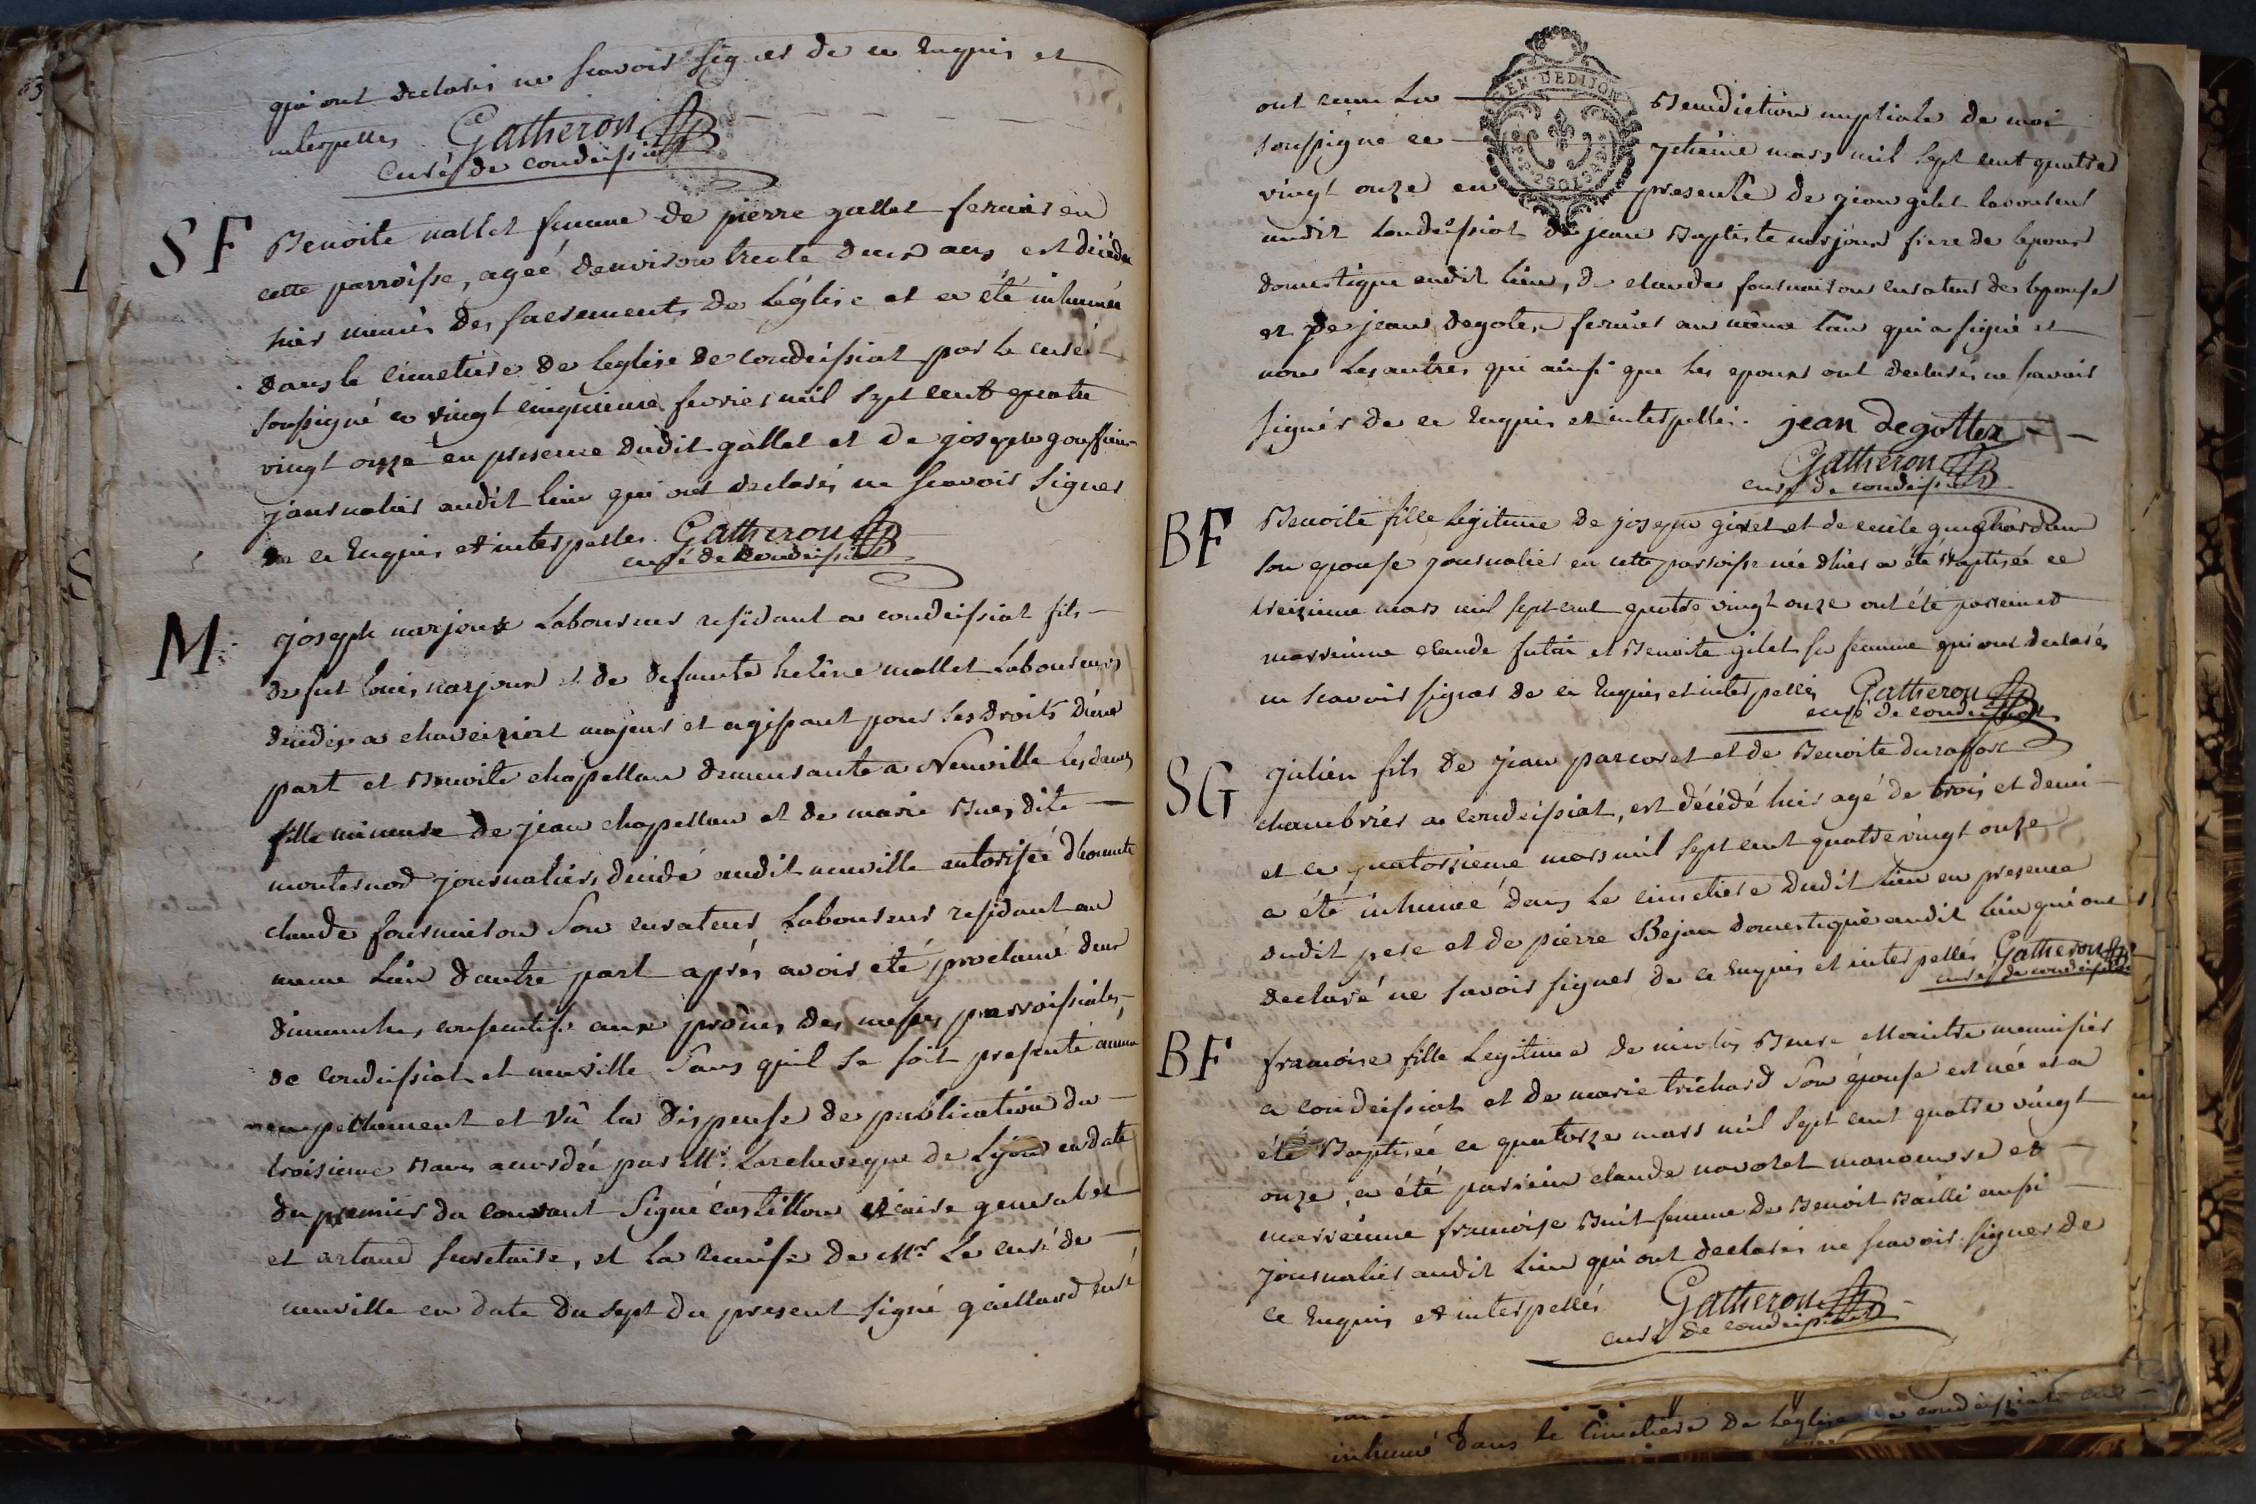 qui ont declarés ne scavoir signer de ce enquis et
interpellés Gatheron
curé de condeissiat
SF
Benoite nallet femme de pierre gallet fermier en
cette parroisse, ageé denviron trente deux ans est décédé
hier munie des sacrements de l'église et a été inhumée
dans le cimetière de leglise de condeissiat par le curé
soussigné ce vingt cinquieme fevrier mil sept cent quatre
vingt onze en presence dudit gallet et de joseph
journalier audit lieu qui ont declarés ne scavoir signer
de ce enquis et interpellés Gatheron
curé de condeissiat
M
joseph narjoux Laboureur residant a condeissiat fils
de fut louis narjoux et de defunte helène mallet Laboureurs
décédés a chaveiriat majeur et agissant pour ses droits d'une
part et Benoite chapellan demeurante a Neuville les dames
fille mineure de jean chapellan et de marie Bues dite
monternod journaliers décidé audit neuville autorisée d'honnete
claude fournaison son curateur Laboureur residant au
meme Lieu d'autre part aprés avoir eté proclamé deux
dimanches consecutifs aux prônes des messes parroissiales
de condeissiat et neuville sans quil se soit presenté aucun
empechement et Vû la dispense de publication du
troisieme Bans accordée par Mr. Larcheveque de Lyon en date
du premier du courant signé castillon vicaire general et
et artaud secretaire, et la remise de Mr Le curé de
neuville en date du sept du present signé gaillard curé
GEN. DE DIJON
ont recu La Benediction nuptiale de moi
soussigné ce mars mil sept cent quatre
vingt onze en presence de jean gilet laboureur
audit Condeissiat de jean Baptiste narjoux frere de lepoux
domestique audit lieu, de claude fournaison curateur de lepouse
et de jean degotex fermier au même lieu qui a signé et
non Les autres qui ainsi que les epoux ont declarés ne scavoir
signer de ce enquis et interpellés. jean degottex
Gatheron
curé de condeissiat
BF
Benoite fille legitime de joseph givet et de cecile
son epouse journalier en cette parroisse née d'hier a été Baptisée ce
treizieme mars mil sept cent quatre vingt onze ont été parrein et
marreinne claude futin et Benoite gilet sa femme qui ont declarés
ne scavoir signer de ce enquis et interpellés Gatheron
curé de condeissiat
SG
julien fils de jean parcoret et de Benoite duraffor
chambrier a condeissiat, est décédé hier agé de trois et demi
et ce quatorzieme mars mil sept cent quatre vingt onze
a été inhumé dans le cimetiere dudit lieu en presence
dudit pere et de pierre Bejan domestique audit lieu qui ont
declaré ne savoir signer de ce enquis et interpellés Gatheron
curé de condeissiat
BF
francoise fille Legitime de nicolas Bure Maitre menuisier
a condeissiat et de marie trichard son épouse est née et a
été Baptisée ce quatorze mars mil sept cent quatre vingt
onze, a été parrein claude navoret manoeuvre et
marreinne francoise Buit femme de Benoit Bailli aussi
journalier audit lieu qui ont declarés ne scavoir signer de
ce enquis et interpellés Gatheron
curé de condeissiat
inhumé dans le cimetiere de l'église de condeissiat